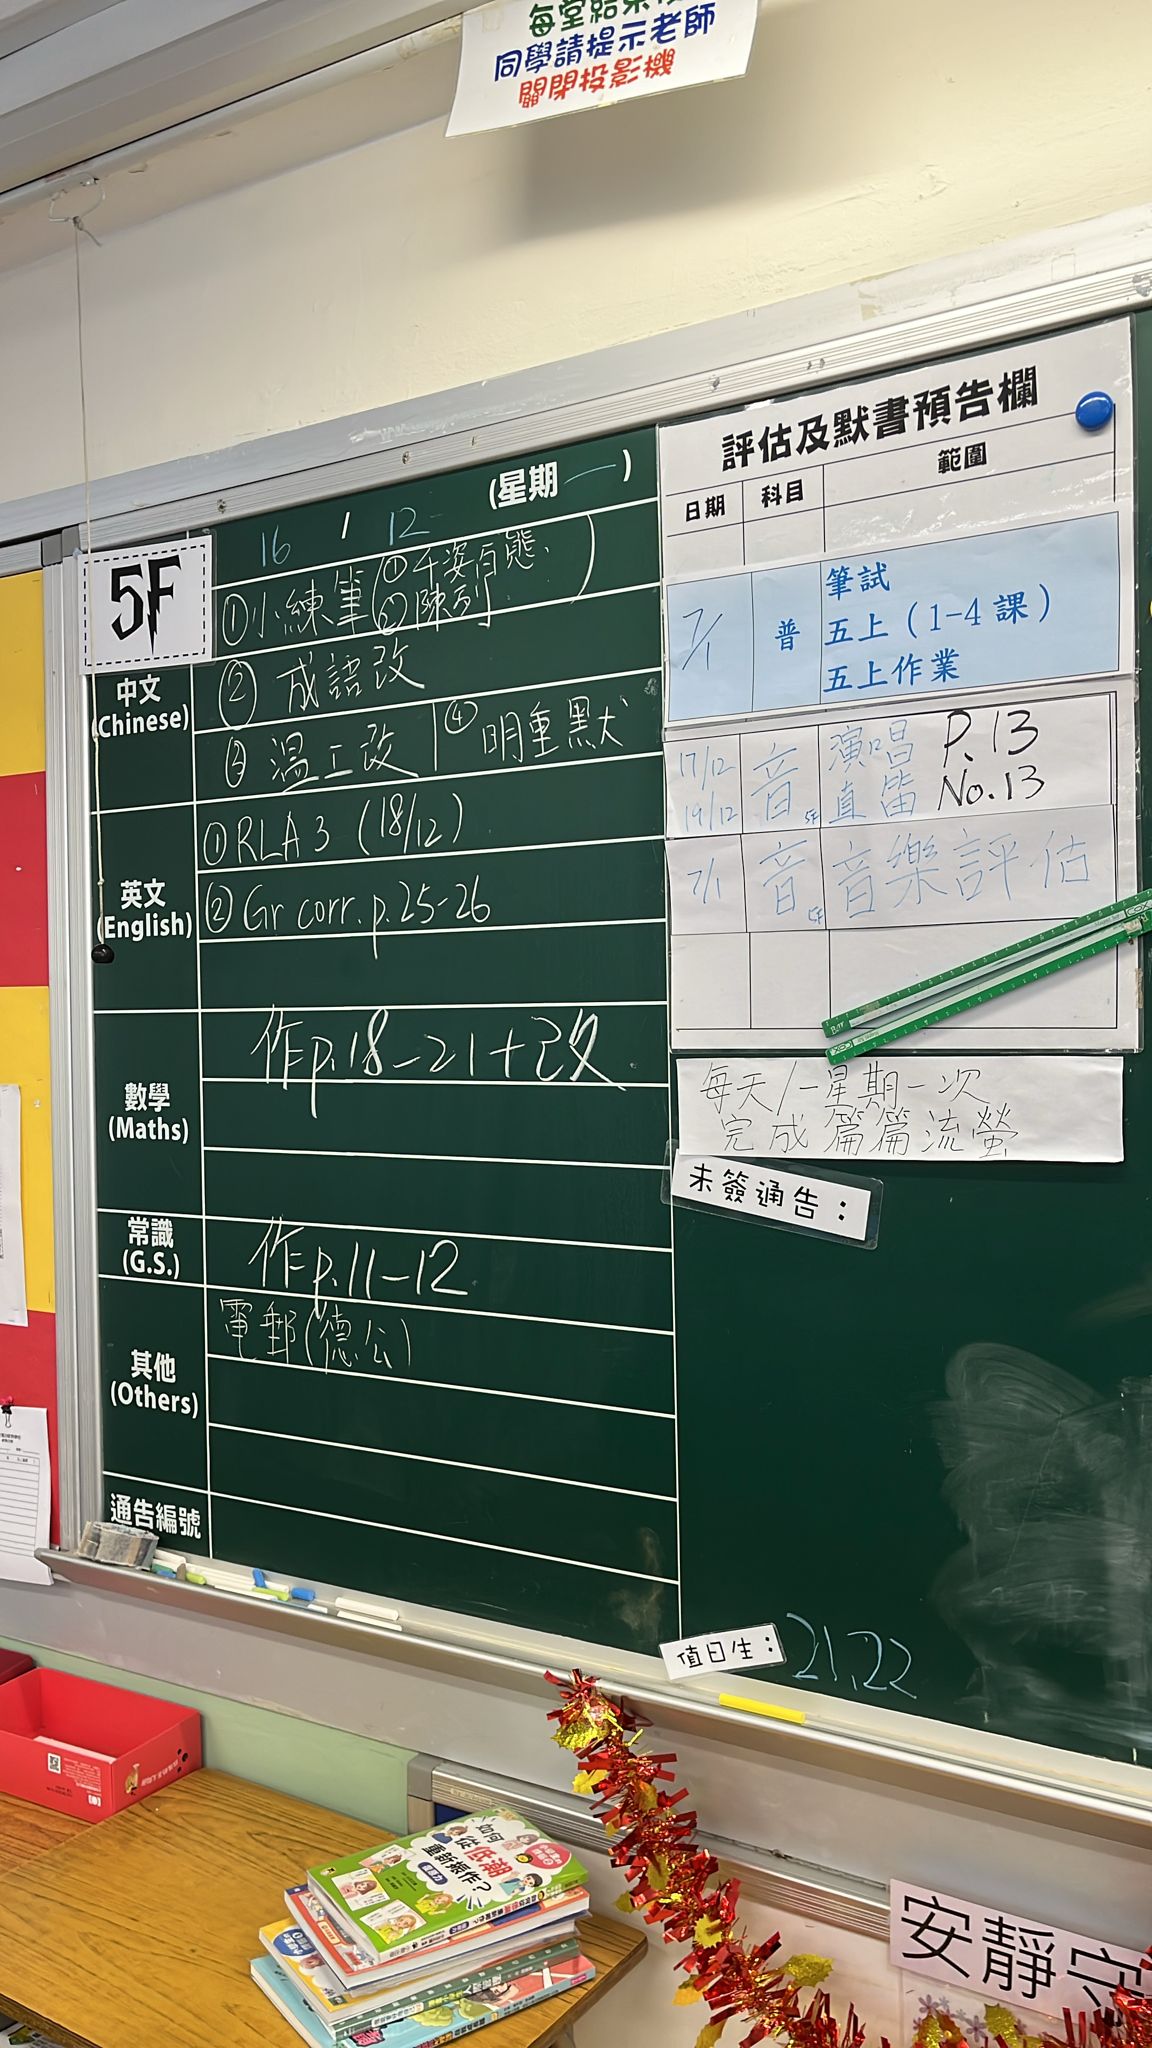 同學請提示老師
關閉投影機
5F
16 / 12 (星期一)
中文
(Chinese)
①小練筆(①千姿百態、
②陳列)
② 成語改
③ 溫工改 | ④ 明重默
英文
(English)
① RLA 3 (18/12)
② Gr corr. p.25-26
數學
(Maths)
作p.18-21+改
常識
(G.S.)
作p.11-12
其他
(Others)
電郵(德公)
通告編號
評估及默書預告欄
日期 科目 範圍
7/1 普 筆試
五上（1-4 課）
五上作業
17/12 音 演唱 P.13
19/12 5F 直笛 No.13
7/1 音 音樂評估
每天/一星期一次
完成篇篇流螢
未簽通告：
值日生： 21、22
如何
從低潮
重新振作？
安靜守